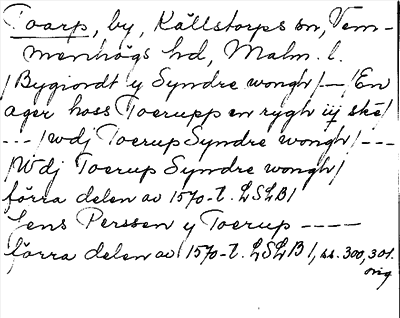 Toarp, by, Källstorps sn, Vem-
menhögs hd, Malm. l.
/Bygiordt y Syndre wongh/ — /En
ager hoss Toerupp en rygh iij skè/
--- /wdj Toerup Syndre wongh/ ---
/Wdj Toerup Syndre wongh/
förra delen av 1570-t. LSLB/
Jens Perssen y Toerup ----
förra delen av 1570-t. LSLB/, ss. 300, 301.
orig